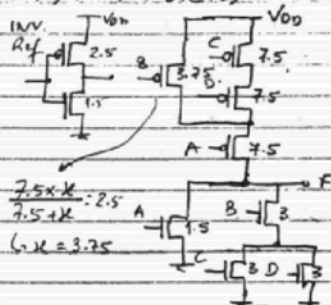 INV. Ref
VDD
2.5
1.5
VDD
C
7.5
B
3.75
D
7.5
A
7.5
F
7.5 x x / 7.5 + x = 2.5
↳ x = 3.75
A
1.5
B
3
C
3
D
3